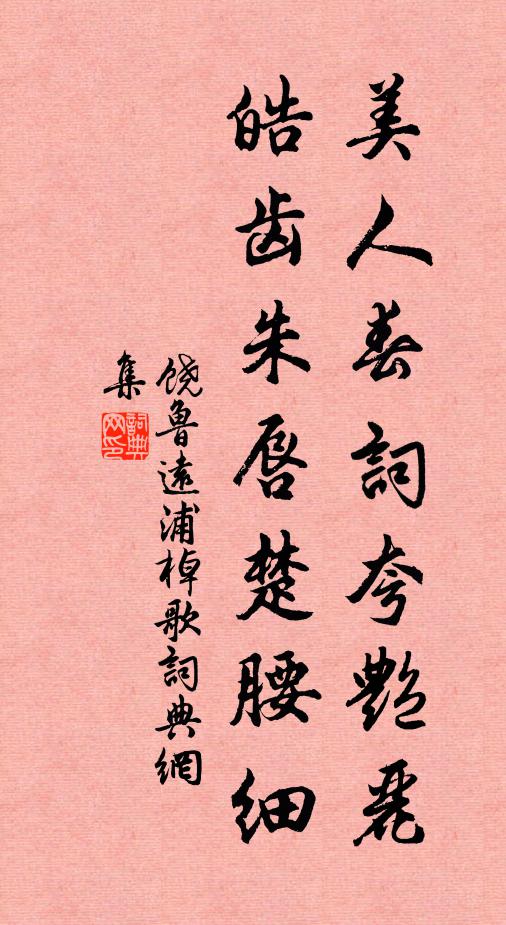 美人春詞夸艷麗
皓齿朱唇楚腰細
饶魯遠浦棹歌詞典網
集
詞典網印